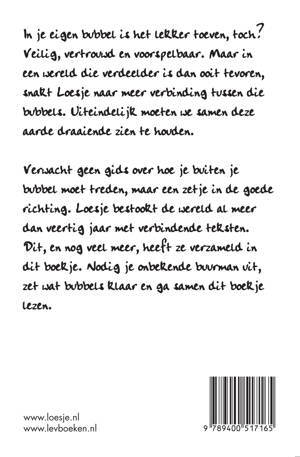 In je eigen bubbel is het lekker toeven, toch?
Veilig, vertrouwd en voorspelbaar. Maar in
een wereld die verdeelder is dan ooit tevoren,
snakt Loesje naar meer verbinding tussen die
bubbels. Uiteindelijk moeten we samen deze
aarde draaiende zien te houden.
Verwacht geen gids over hoe je buiten je
bubbel moet treden, maar een zetje in de goede
richting. Loesje bestookt de wereld al meer
dan veertig jaar met verbindende teksten.
Dit, en nog veel meer, heeft ze verzameld in
dit boekje. Nodig je onbekende buurman uit,
zet wat bubbels klaar en ga samen dit boekje
lezen.
www.loesje.nl
www.levboeken.nl
9 789400 517165